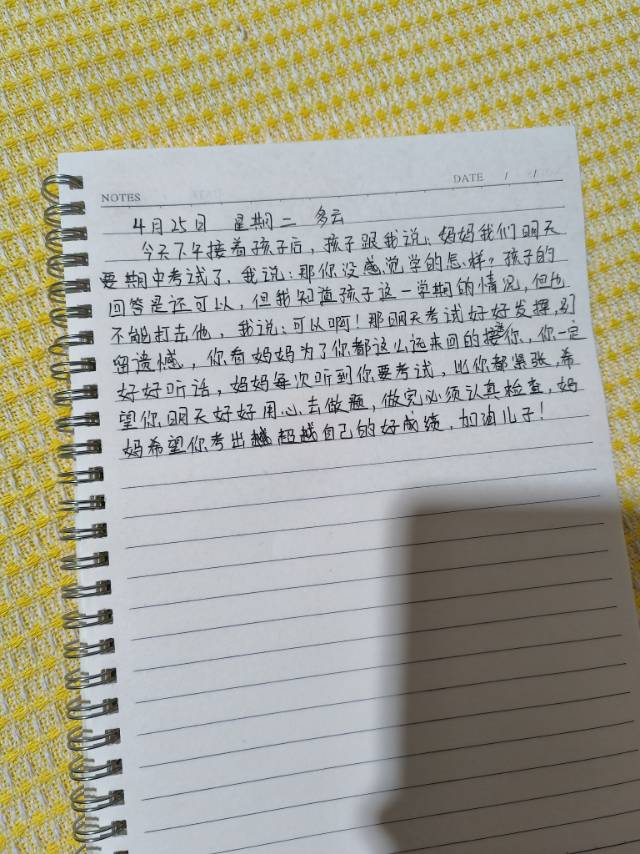 NOTES
DATE / /
4月25日 星期二 多云
今天下午接着孩子后，孩子跟我说：妈妈我们明天
要期中考试了，我说：那你没感觉学的怎样？孩子的
回答是还可以，但我知道孩子这一学期的情况，但也
不能打击他，我说：可以啊！那明天考试好好发挥，别
留遗憾，你看妈妈为了你都这么远来回的接你，你一定
好好听话，妈妈每次听到你要考试，比你都紧张，希
望你明天好好用心去做题，做完必须认真检查，妈
妈希望你考出超越自己的好成绩，加油儿子！